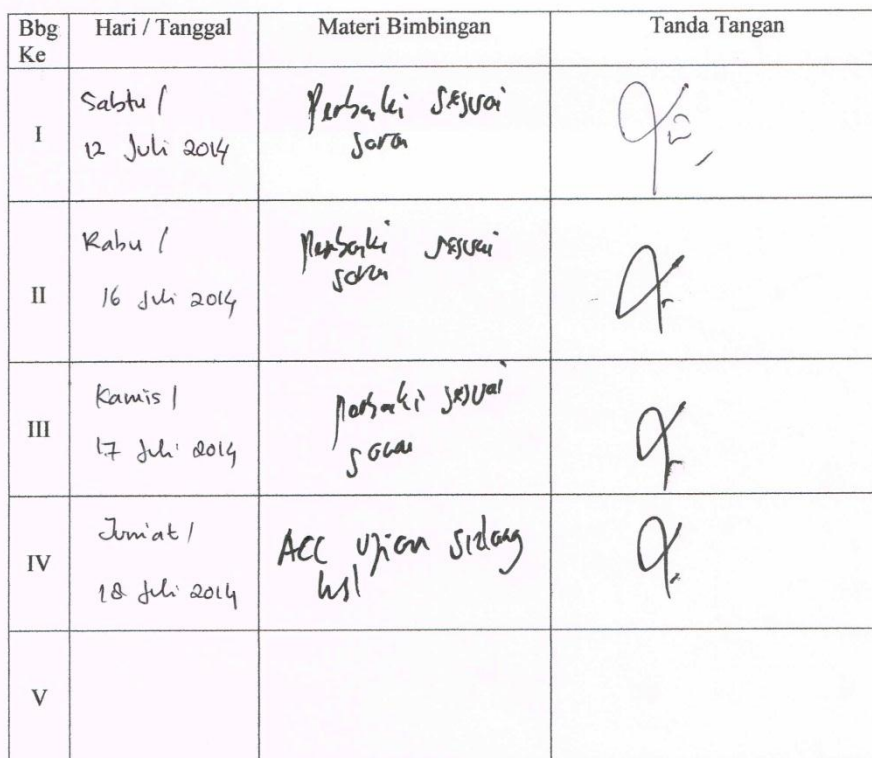 Bbg Ke Hari / Tanggal Materi Bimbingan Tanda Tangan
I Sabtu / 12 Juli 2014 Perbaiki sesuai saran
II Rabu / 16 Juli 2014 Perbaiki sesuai saran
III Kamis / 17 Juli 2014 perbaiki sesuai saran
IV Jum'at / 18 Juli 2014 ACC Ujian Sidang
V